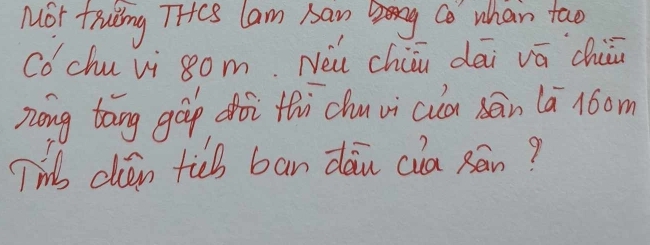 Một trường THCS làm sân bóng cỏ nhân tạo
Có chu vi 80m. Nếu chiều dài và chiều
rộng tăng gấp đôi thì chu vi của sân là 160m
Tính diện tích ban đầu của sân?